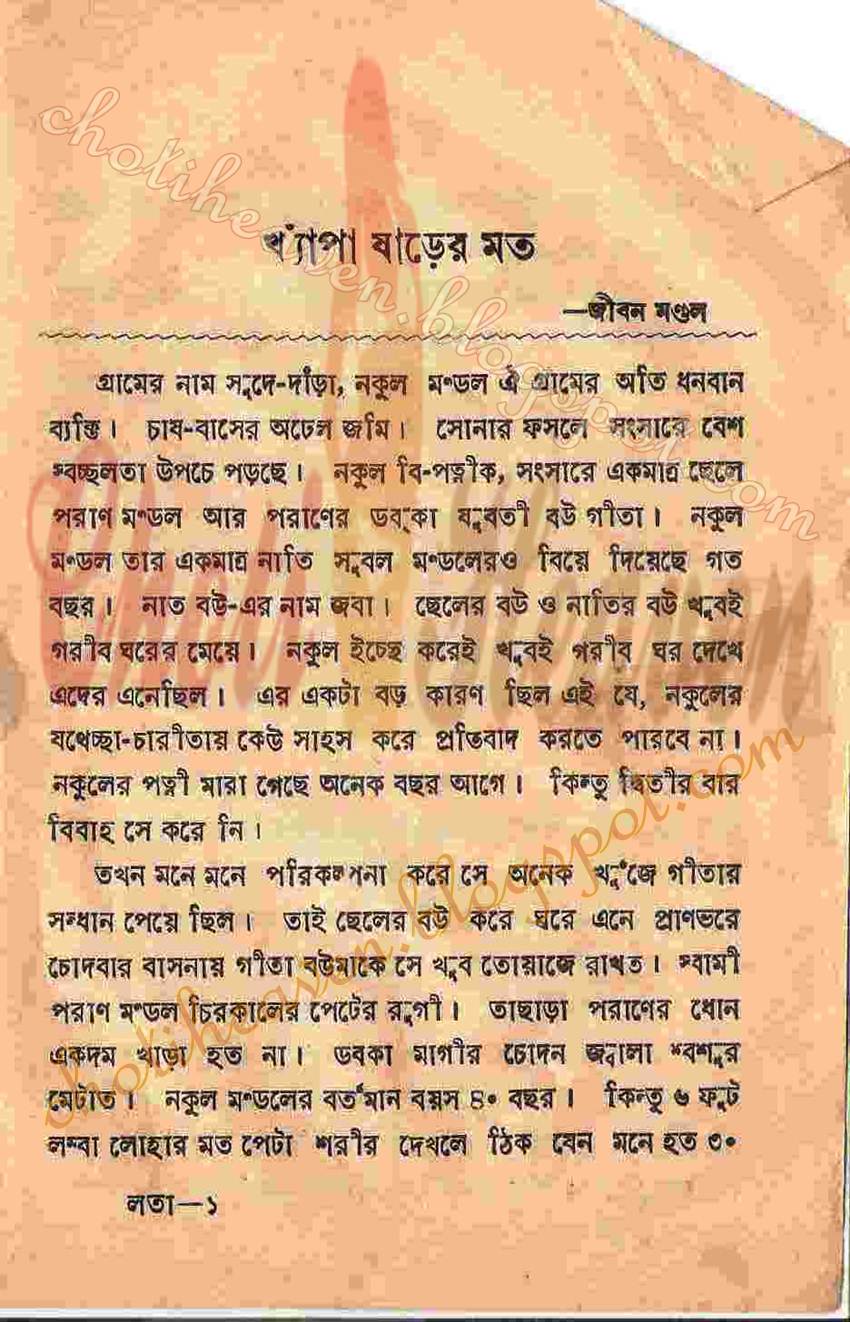 খ্যাঁপা ষাড়ের মত
—জীবন মণ্ডল
গ্রামের নাম সুদে-দাঁড়া, নকুল মণ্ডল ঐ গ্রামের অতি ধনবান
ব্যক্তি। চাষ-বাসের অঢেল জমি। সোনার ফসলে সংসারে বেশ
স্বচ্ছলতা উপচে পড়ছে। নকুল বি-পত্নীক, সংসারে একমাত্র ছেলে
পরাণ মণ্ডল আর পরাণের ডবকা যুবতী বউ গীতা। নকুল
মণ্ডল তার একমাত্র নাতি সুবল মণ্ডলেরও বিয়ে দিয়েছে গত
বছর। নাত বউ-এর নাম জবা। ছেলের বউ ও নাতির বউ খুবই
গরীব ঘরের মেয়ে। নকুল ইচ্ছে করেই খুবই গরীব ঘর দেখে
এদের এনেছিল। এর একটা বড় কারণ ছিল এই যে, নকুলের
যথেচ্ছা-চারীতায় কেউ সাহস করে প্রতিবাদ করতে পারবে না।
নকুলের পত্নী মারা গেছে অনেক বছর আগে। কিন্তু দ্বিতীর বার
বিবাহ সে করে নি।
তখন মনে মনে পরিকল্পনা করে সে অনেক খুঁজে গীতার
সন্ধান পেয়ে ছিল। তাই ছেলের বউ করে ঘরে এনে প্রাণভরে
চোদবার বাসনায় গীতা বউমাকে সে খুব তোয়াজে রাখত। স্বামী
পরাণ মণ্ডল চিরকালের পেটের রুগী। তাছাড়া পরাণের ধোন
একদম খাড়া হত না। ডবকা মাগীর চোদন জ্বালা শ্বশুর
মেটাত। নকুল মণ্ডলের বর্তমান বয়স ৪০ বছর। কিন্তু ৬ ফুট
লম্বা লোহার মত পেটা শরীর দেখলে ঠিক যেন মনে হত ৩০
লতা—১
chotiheaven.blogspot.com
chotiheaven.blogspot.com